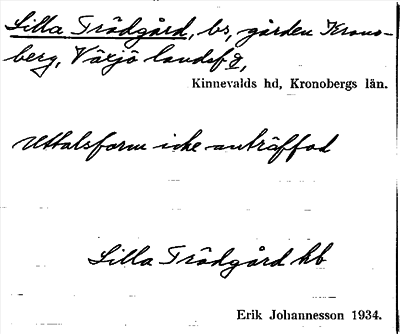 Lilla Trädgård, bs, gården Krono-
berg, Växjö landsf,
Kinnevalds hd, Kronobergs län.
Uttalsform icke anträffad
Lilla Trädgård hb
Erik Johannesson 1934.